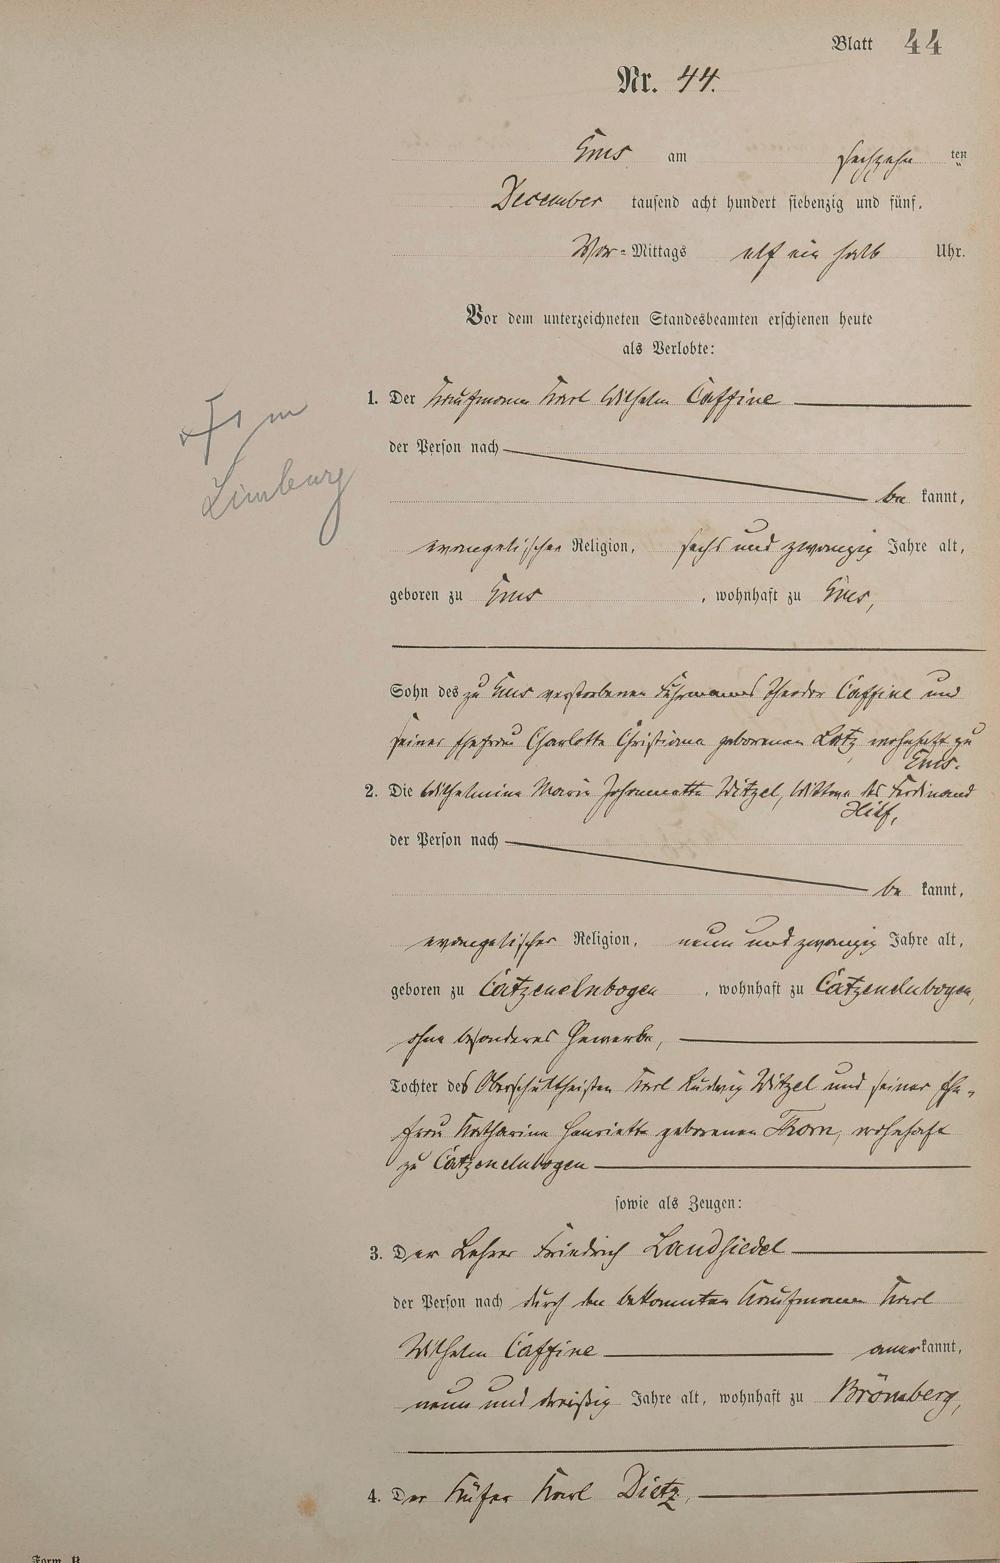 Blatt 44
Nr. 44.
Ems am sechzehn ten
December tausend acht hundert siebenzig und fünf,
Vor=Mittags elf ein halb Uhr.
Vor dem unterzeichneten Standesbeamten erschienen heute
als Verlobte:
1. Der Kaufmann Karl Wilhelm Caffine
der Person nach
be kannt,
Limburg
evangelischer Religion, sechs und zwanzig Jahre alt,
geboren zu Ems, wohnhaft zu Ems,
Sohn des zu Ems verstorbenen Fuhrmannes Theodor Caffine und
seiner Ehefrau Charlotte Christiane geborenen Lotz, wohnhaft zu
Ems.
2. Die Wilhelmine Marie Johannette Witzel, Wittwe des Ferdinand
Hilf,
der Person nach
be kannt,
evangelischer Religion, neun und zwanzig Jahre alt,
geboren zu Catzenelnbogen, wohnhaft zu Catzenelnbogen,
ohne besonderes Gewerbe,
Tochter des Oberschultheisten Karl Ludwig Witzel und seiner Ehe-
frau Katharine Henriette geborenen Thorn, wohnhaft
zu Catzenelnbogen
sowie als Zeugen:
3. Der Lehrer Friedrich Landsiedel
der Person nach durch den bekannten Kaufmann Karl
Wilhelm Caffine anerkannt,
neun und dreißig Jahre alt, wohnhaft zu
4. Der Küfer Karl Dietz,